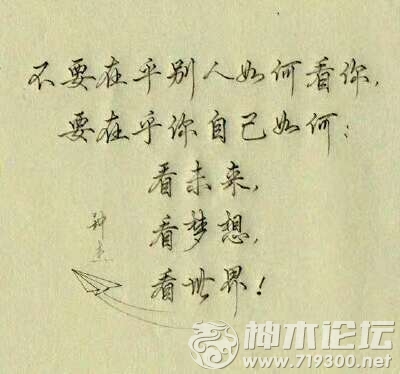 不要在乎别人如何看你,
要在乎你自己如何:
看未来,
看梦想,
看世界!
神木论坛
www.719300.net